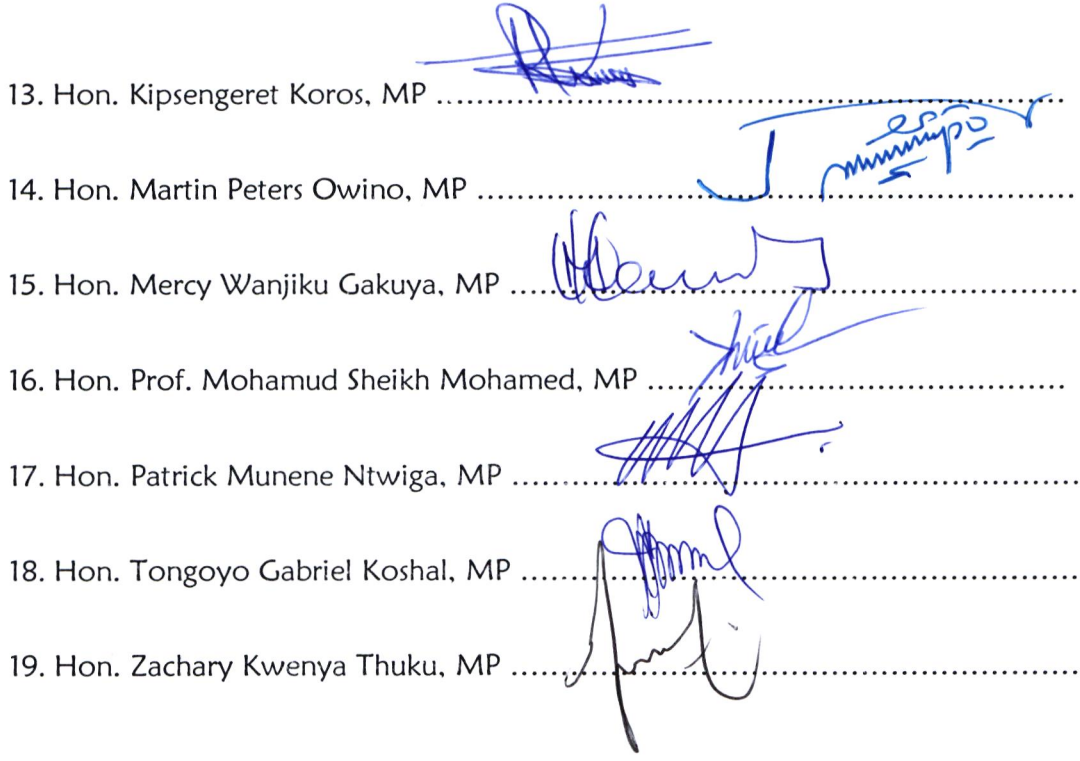 13. Hon. Kipsengeret Koros, MP ................................................
14. Hon. Martin Peters Owino, MP ................................................
15. Hon. Mercy Wanjiku Gakuya, MP ................................................
16. Hon. Prof. Mohamud Sheikh Mohamed, MP ................................................
17. Hon. Patrick Munene Ntwiga, MP ................................................
18. Hon. Tongoyo Gabriel Koshal, MP ................................................
19. Hon. Zachary Kwenya Thuku, MP ................................................